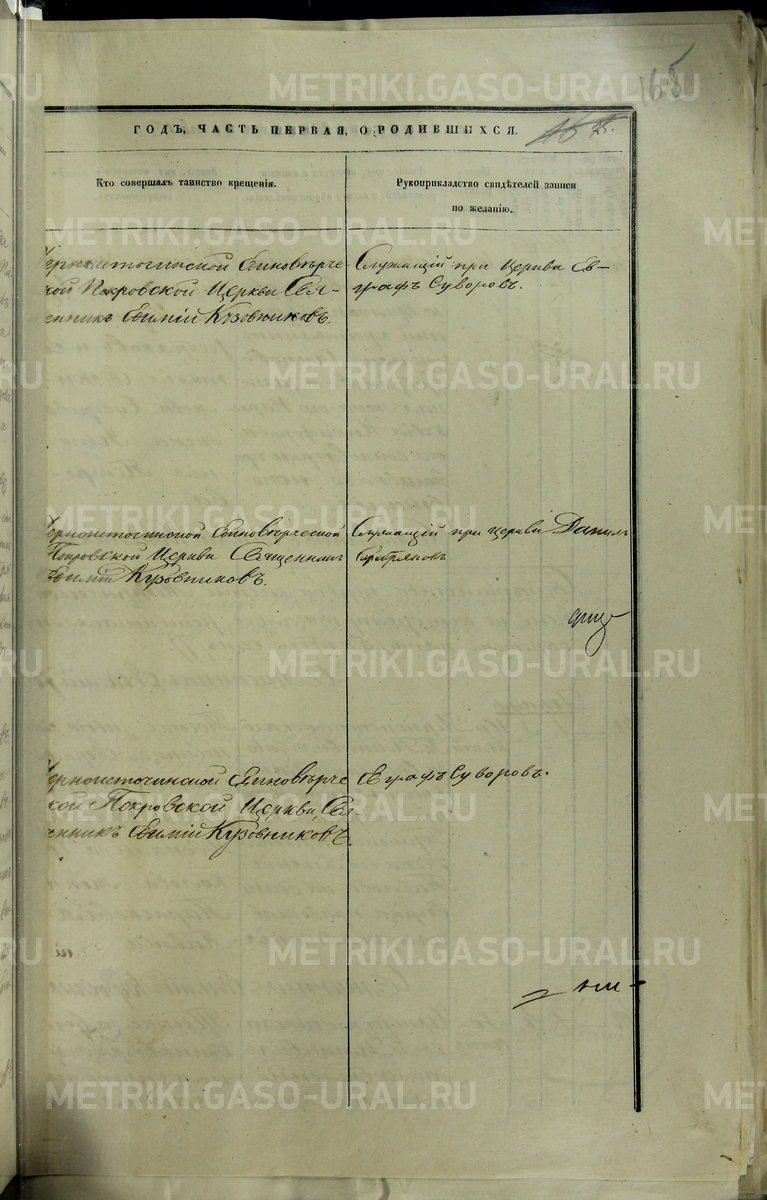 165
ГОДЪ, ЧАСТЬ ПЕРВАЯ, О РОДИВШИХСЯ.
Кто совершалъ таинство крещенія.
Рукоприкладство свидѣтелей записи
по желанію.
Черноисточинской Единовѣрче-
ской Покровской Церкви Свя-
щенникъ Евѳимій Кузовниковъ.
Служащій при Церкви Ев-
графъ Суворовъ.
Черноисточинской Единовѣрческой
Покровской Церкви Священникъ
Евѳимій Кузовниковъ.
Служащій при Церкви Данилъ
Черноисточинской Единовѣрче
ской Покровской Церкви, Свя-
щенникъ Евѳимій Кузовниковъ.
Евграфъ Суворовъ.
METRIKI.GASO-URAL.RU